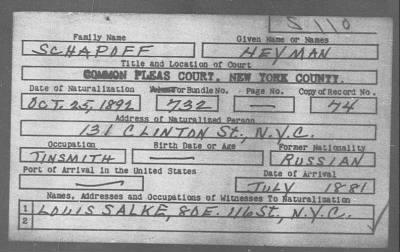 S 110
Family Name Given Name or Names
SCHAPOFF HEYMAN
Title and Location of Court
COMMON PLEAS COURT, NEW YORK COUNTY.
Date of Naturalization Volume or Bundle No. Page No. Copy of Record No.
OCT. 25, 1892 732 — 74
Address of Naturalized Person
131 CLINTON St., N.Y.C.
Occupation Birth Date or Age Former Nationality
TINSMITH — RUSSIAN
Port of Arrival in the United States Date of Arrival
— JULY 1881
Names, Addresses and Occupations of Witnesses To Naturalization
1 LOUIS SALKE, 80 E. 116 St., N.Y.C.
2